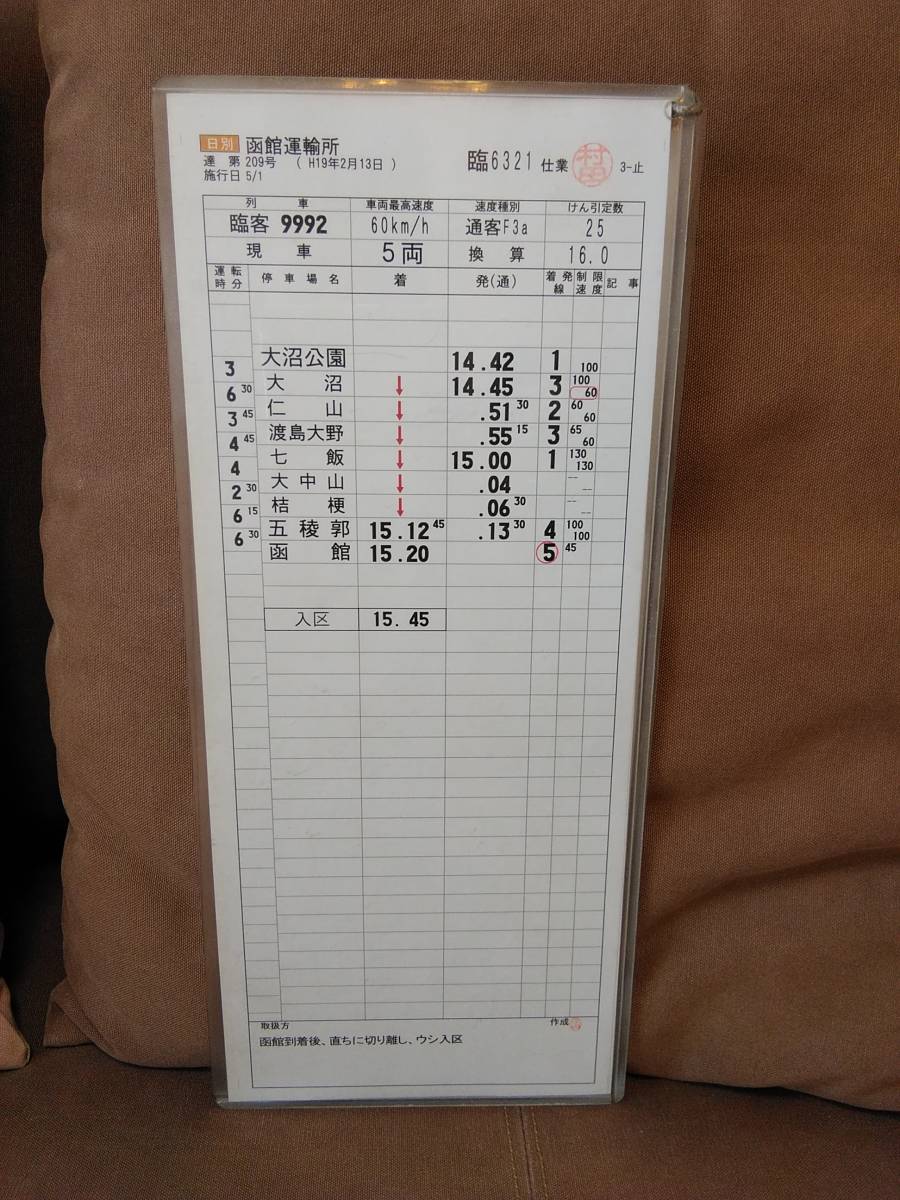 日別 函館運輸所
達 第 209号 ( H19年2月13日 )
施行日 5/1
臨6321 仕業 3-止
列 車 車両最高速度 速度種別 けん引定数
臨客 9992 60km/h 通客F3a 25
現 車 5両 換 算 16.0
運転時分 停車場名 着 発(通) 着発線 制限速度 記事
大沼公園 14.42 1 100
3
大 沼 ↓ 14.45 3 100 60
6 30
仁 山 ↓ .51 30 2 60 60
3 45
渡島大野 ↓ .55 15 3 65 60
4 45
七 飯 ↓ 15.00 1 130 130
4
大中山 ↓ .04 -- --
2 30
桔 梗 ↓ .06 30 -- --
6 15
五稜郭 15.12 45 .13 30 4 100 100
6 30
函 館 15.20 5 45
入区 15.45
取扱方 作成
函館到着後、直ちに切り離し、ウシ入区